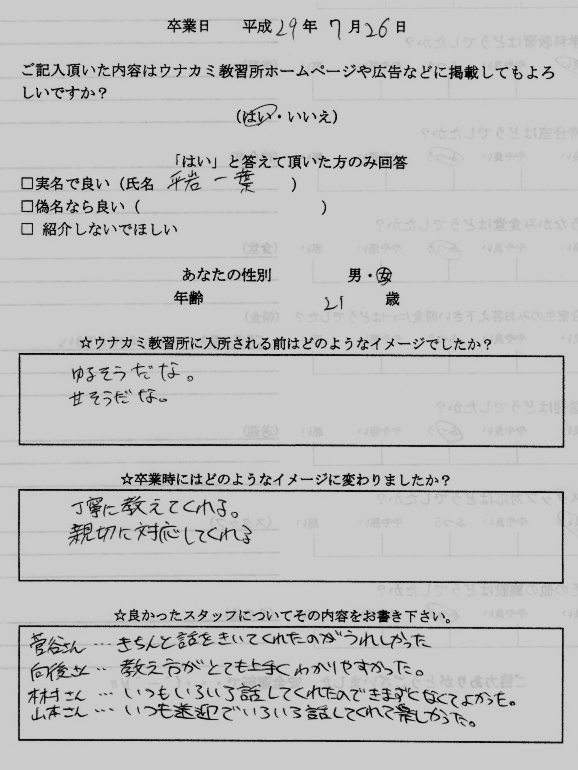 卒業日 平成29年7月26日
ご記入頂いた内容はウナカミ教習所ホームページや広告などに掲載してもよろ
しいですか?
(はい・いいえ)
「はい」と答えて頂いた方のみ回答
□実名で良い(氏名 平岩 一葉 )
□偽名なら良い( )
□ 紹介しないでほしい
あなたの性別 男・女
年齢 21 歳
☆ウナカミ教習所に入所される前はどのようなイメージでしたか?
ゆるそうだな。
甘そうだな。
☆卒業時にはどのようなイメージに変わりましたか?
丁寧に教えてくれる。
親切に対応してくれる
☆良かったスタッフについてその内容をお書き下さい。
菅谷さん…きちんと話をきいてくれたのがうれしかった
向後さん…教え方がとても上手くわかりやすかった。
林村さん…いつもいろいろ話してくれたのできまずくなくてよかった。
山本さん…いつも送迎でいろいろ話してくれて楽しかった。